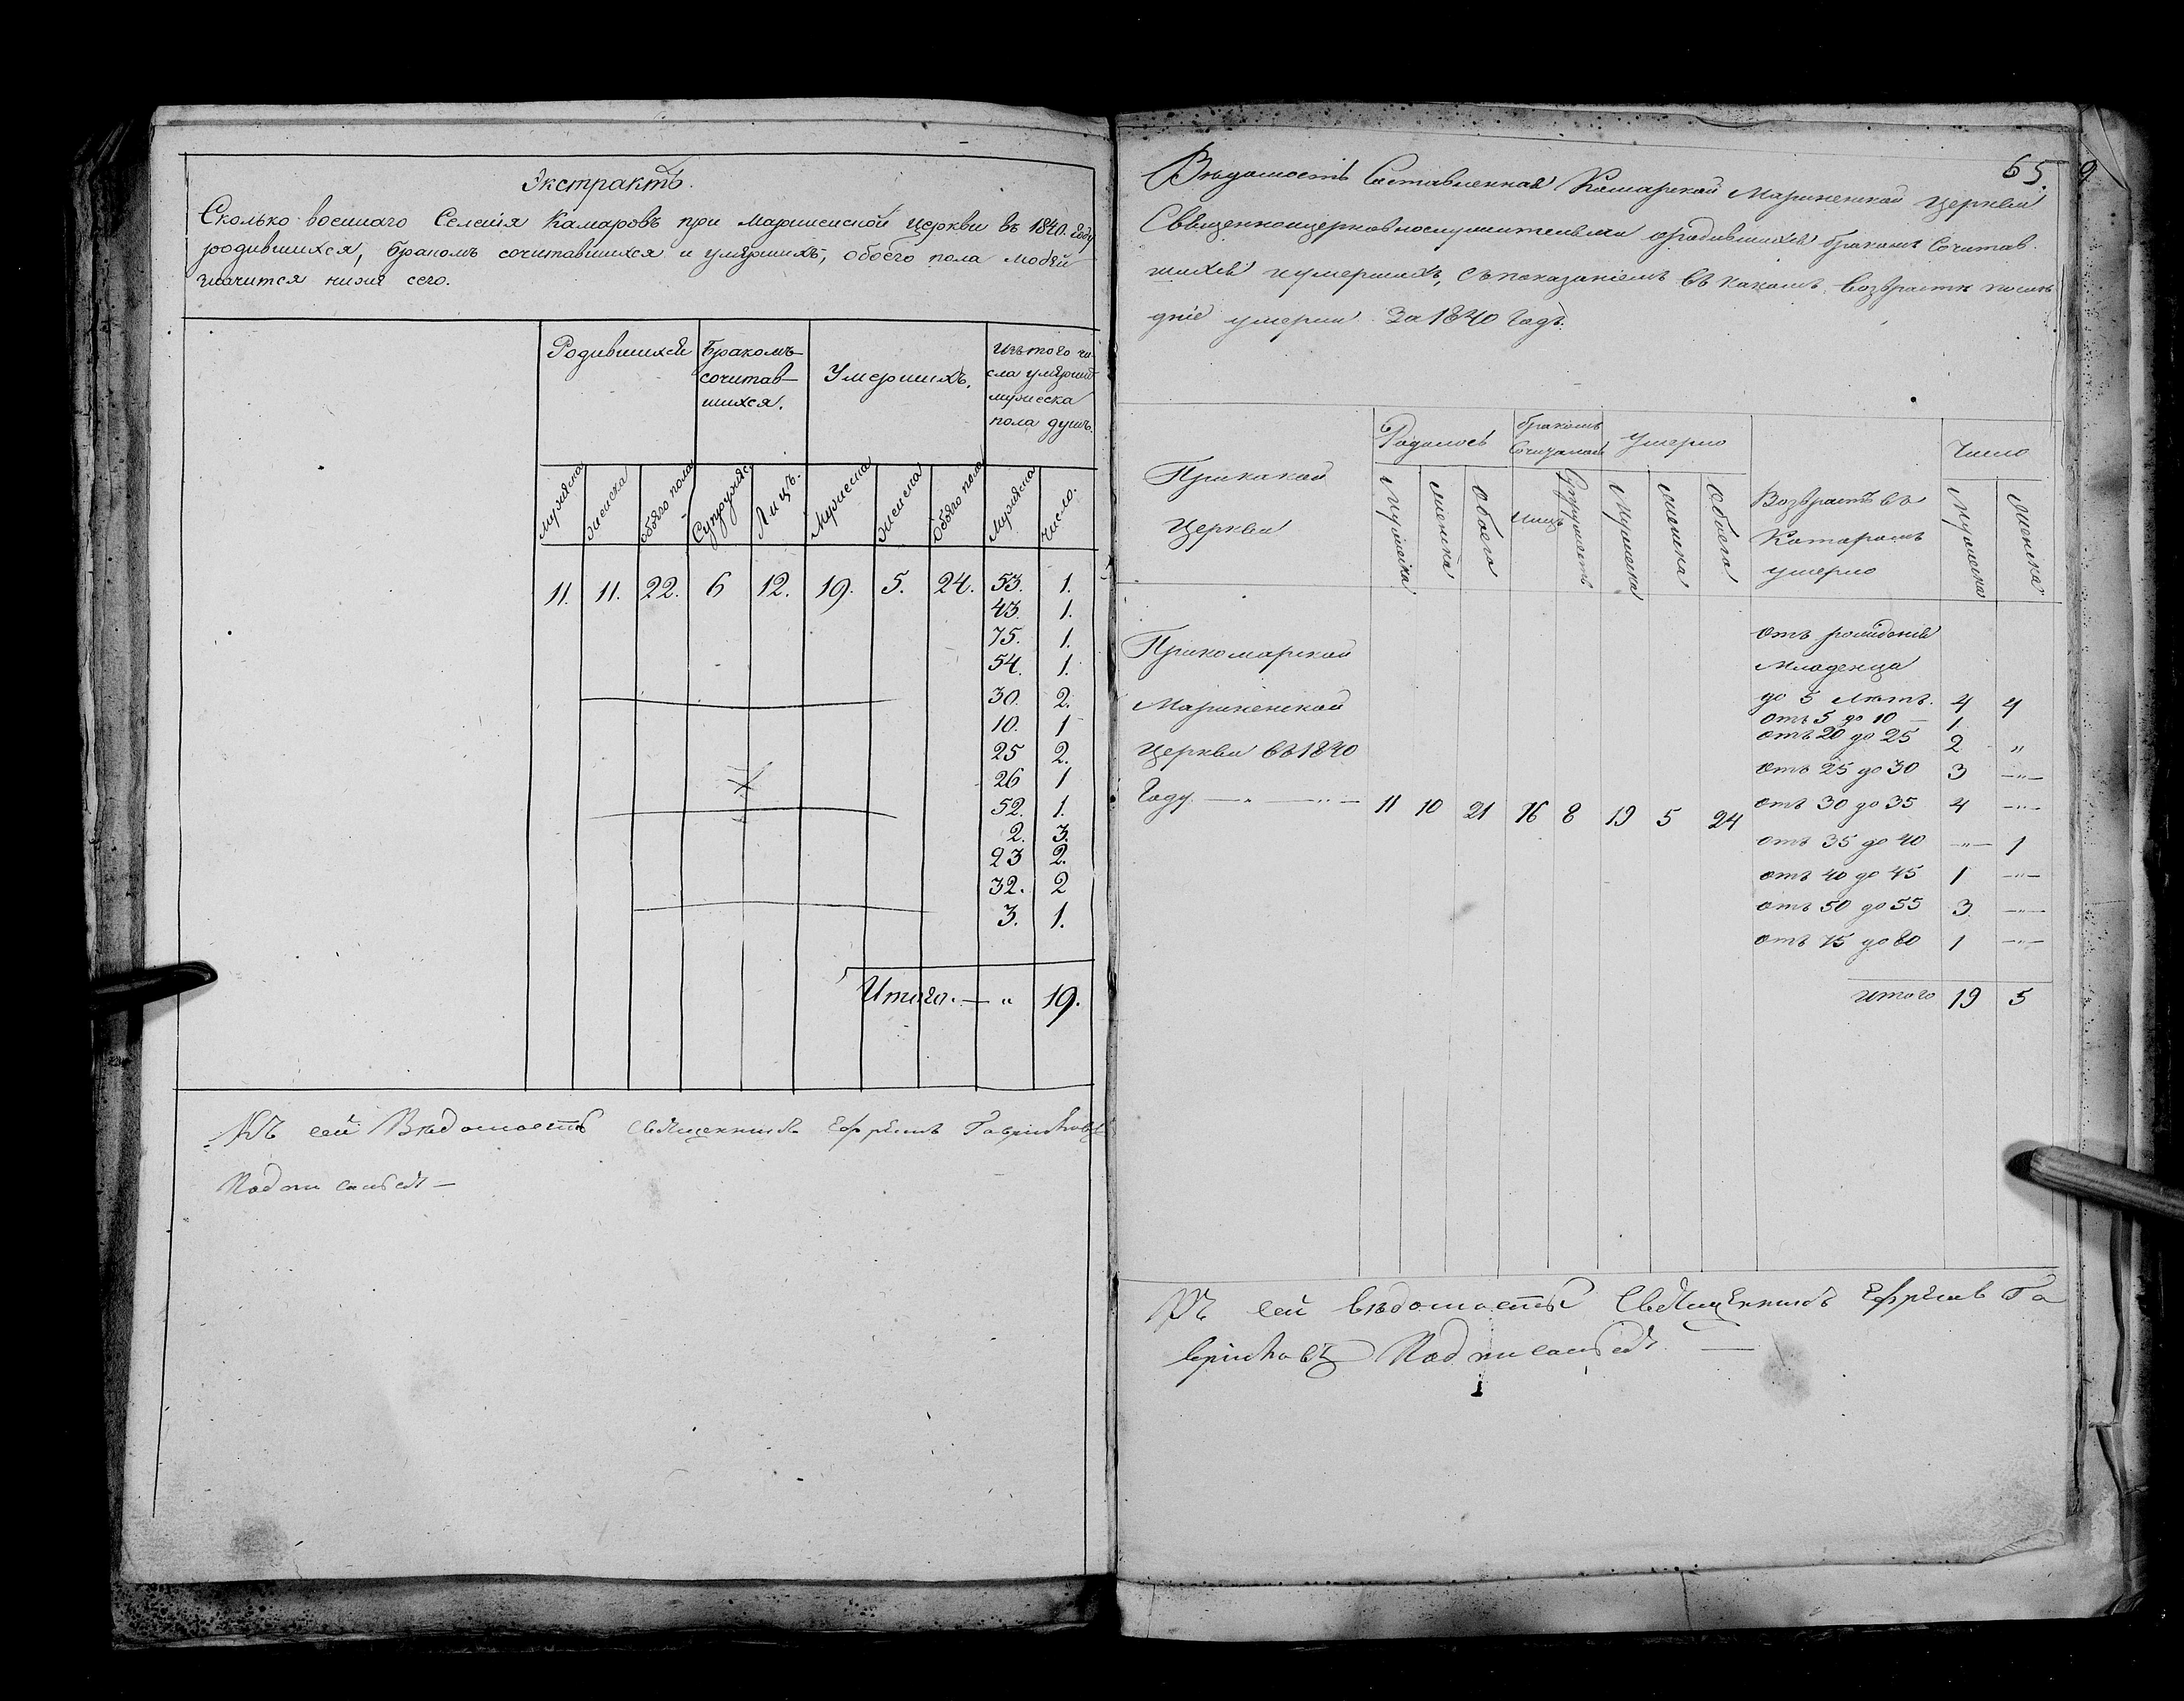 Экстрактъ.
Сколько военнаго Селенія Камаровъ при Маріинской Церкви въ 1840. Году
родившихся, бракомъ сочитавшихся и умершихъ, обоего пола людей
значится ниже сего.
Родившихся
Бракомъ
сочитав-
шихся.
Умершихъ.
Изъ того чи-
сла умерших
мужеска
пола душъ.
Мужеска
женска
обоего пола
Супружес.
Лицъ.
Мужеска
женска
Обоего пола
Мужеска
число.
11. 11. 22. 6 12. 19. 5. 24. 53. 1.
43. 1.
75. 1.
54. 1.
30. 2.
10. 1
25 2.
26 1
52. 1.
2. 3.
23 2.
32. 2
3. 1.
Итого. — „ 19.
Къ сей Вѣдомостѣ Священникъ Ефремъ Гавриловъ
Подписался —
65.
9
Вѣдомость Составленная Камарской Маріиненской Церкви
Священноцерковнослужителями ородившихся бракомъ Сочитав
шихся иумершихъ, съпоказаніемъ въ какомъ возврастѣ послѣ
дніе умерли За 1840 Годъ.
Прикакой
Церкви
Родилось
бракомъ
Сочиталось
Умерло
Возврастъ въ
Которомъ
умерло
Число
Мужеска
женска
Обоего
Лицъ
Супружествъ
Мужеска
женска
Обоего
Мужеска
женска
Прикомарской
Маріиненской
Церкви въ1840
Году — „ — „ — 11 10 21 16 8 19 5 24
отъ рожденія
Младенца
до 5 лѣтъ. 4 4
отъ 5 до 10 — 1.
отъ 20 до 25 2 „
отъ 25 до 30 3 —„—
отъ 30 до 35 4 —„—
отъ 35 до 40 —„— 1
отъ 40 до 45 1 —„—
отъ 50 до 55 3 —„—
отъ 75 до 80 1 —„—
итого 19 5
Къ сей вѣдомостѣ Священникъ Ефремъ Га
вриловъ Подписался —